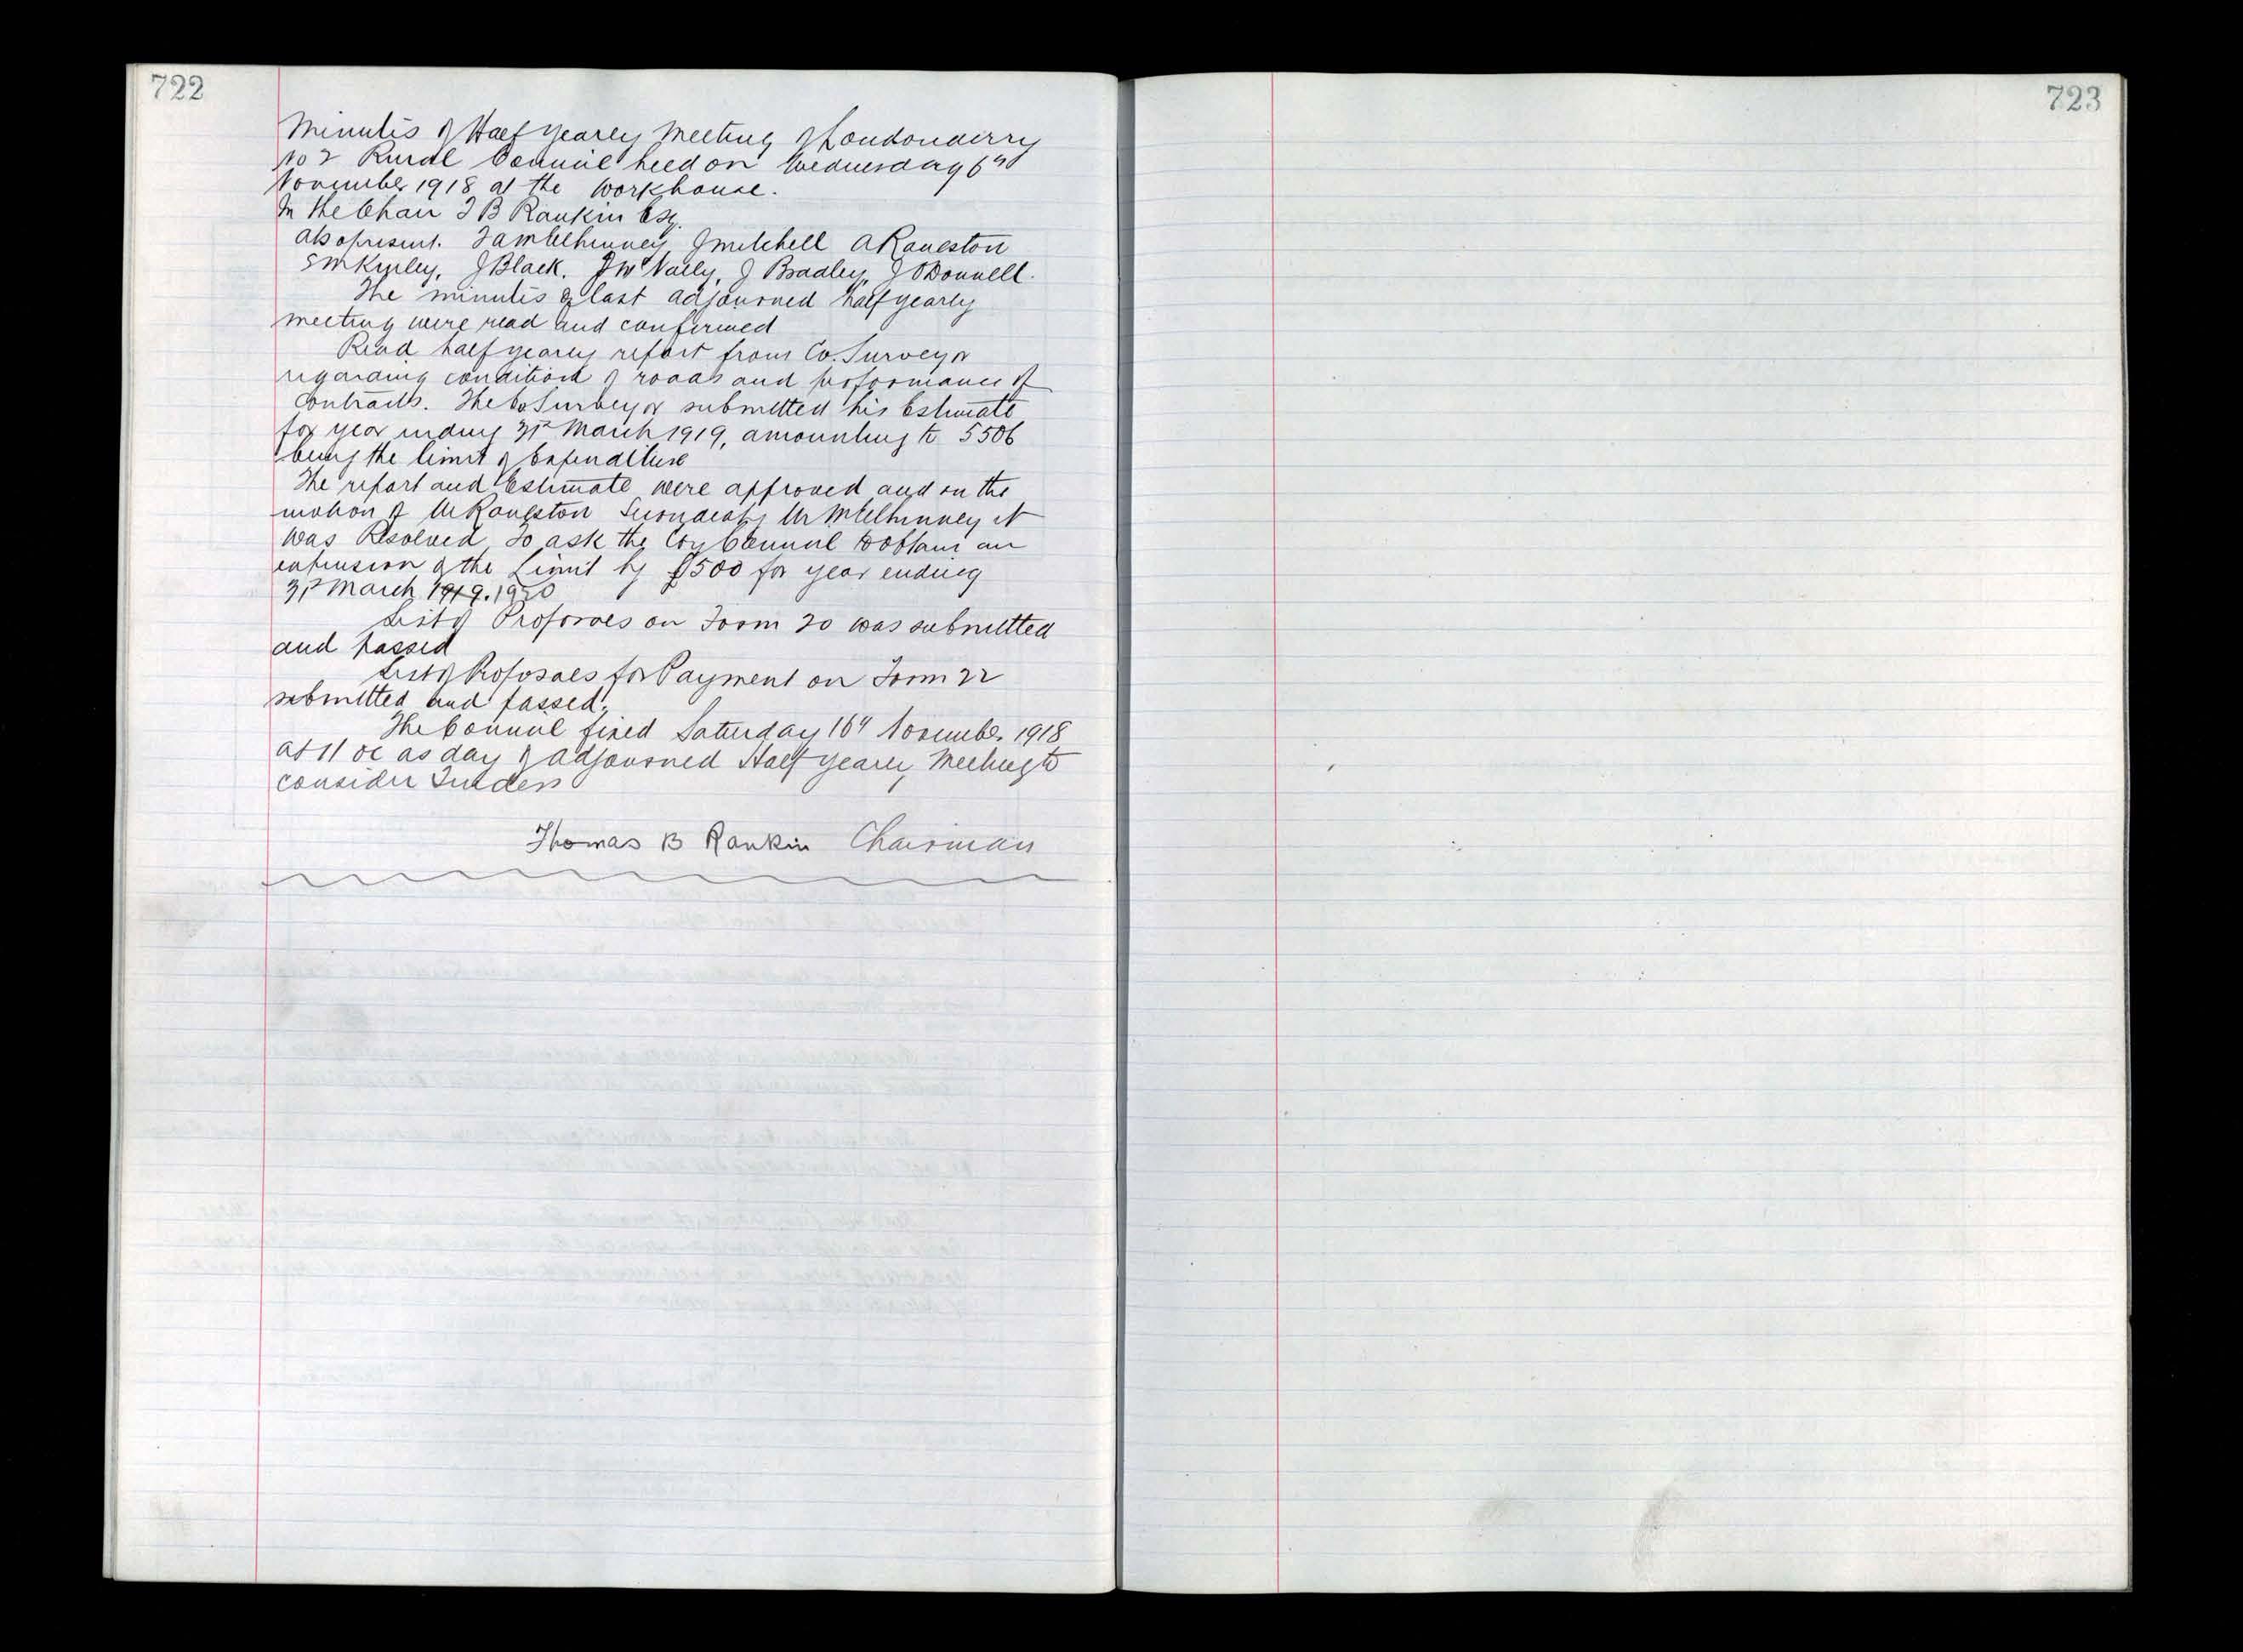 722
Minutes of Half Yearly Meeting of Londonderry
No 2 Rural Council held on Wednesday 6th
November 1918 at the Workhouse.
In the Chair T B Rankin Esq.
also present. J Mitchell A Raulston
S McKinley, J Black, J McNally, J Bradley, J O'Donnell.
The minutes of last adjourned half yearly
meeting were read and confirmed
Read half yearly report from Co. Surveyor
regarding condition of roads and performance of
Contracts. The Co Surveyor submitted his Estimate
for year ending 31st March 1919, amounting to 5506
being the limit of Expenditure
The report and Estimate were approved and on the
motion of Mr Raulston Seconded by Mr McElhinney it
was Resolved To ask the Coy Council to obtain an
extension of the Limit by £1500 for year ending
31st March 1919. 1920
List of Proposals on Form 20 was submitted
and passed
List of Proposals for Payment on Form 22
submitted and passed.
The Council fixed Saturday 16th November 1918
at 11 oc as day of adjourned Half yearly Meeting to
consider Tenders
Thomas B Rankin Chairman
723